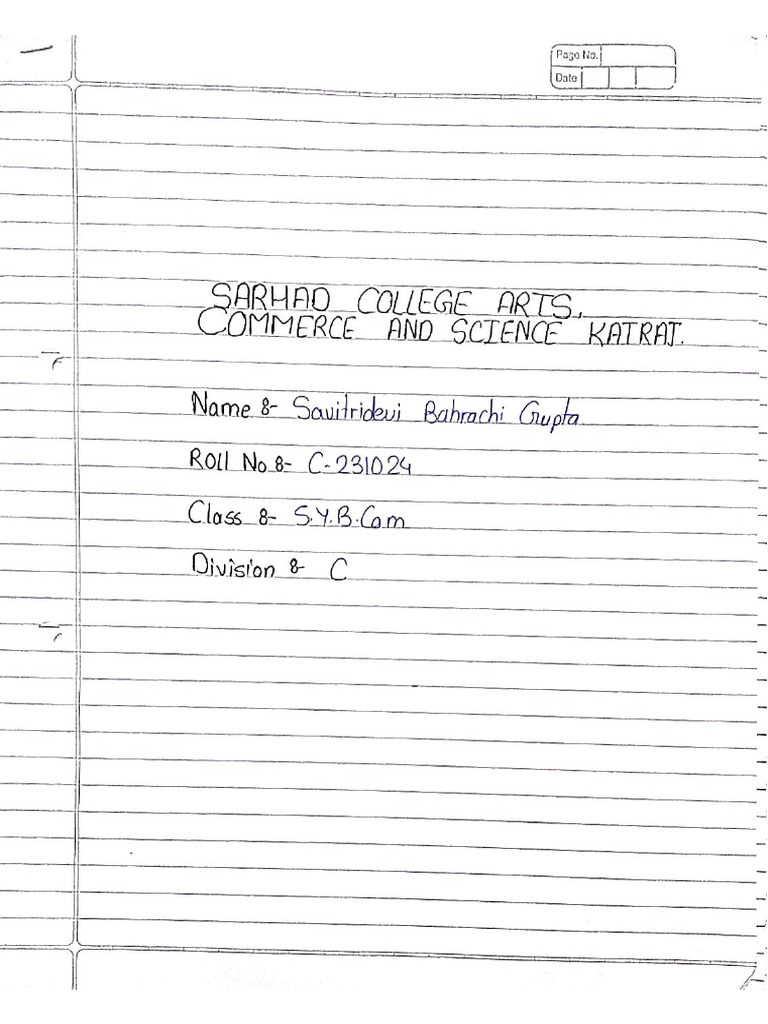 Page No.
Date
SARHAD COLLEGE ARTS,
COMMERCE AND SCIENCE KATRAJ.
Name 8- Savitridevi Bahrachi Gupta
Roll No.8- C-231024
Class 8- S.Y.B.Com
Division 8- C